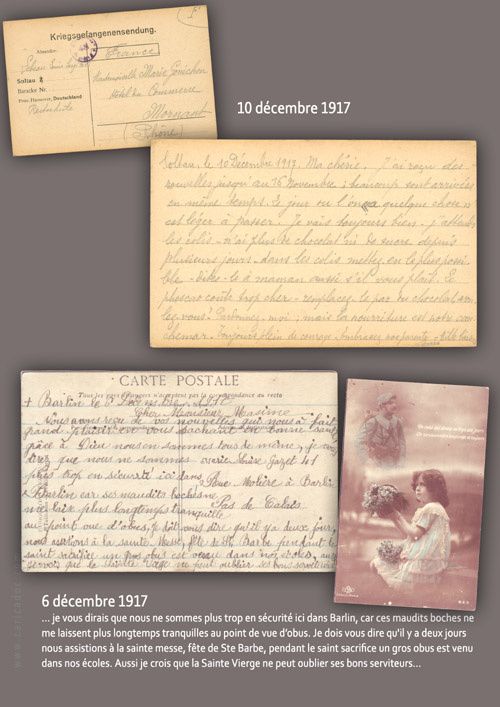 Kriegsgefangenensendung.
Absender:
France
Soltau
Mademoiselle Marie
Baracke Nr.
Hôtel du Commerce
Prov. Hannover, Deutschland
Mornant
(Rhône)
10 décembre 1917
Soltau, le 10 Décembre 1917. Ma chérie. J'ai reçu des
nouvelles jusqu'au 16 novembre ; beaucoup sont arrivées
en même temps. Le jour où l'on a quelque chose
est léger à passer. Je vais toujours bien - j'attends
les colis - n'ai plus de chocolat ni de sucre depuis
plusieurs jours - dans les colis mettez en le plus possi
ble - dites-le à maman aussi s'il vous plaît. Le
coûte trop cher - remplacez le par du chocolat
lez-vous ? Pardonnez-moi ; mais la nourriture est notre cau
chemar. Toujours plein de courage. Embrassez nos parents
CARTE POSTALE
Tous les pays étrangers n'acceptent pas la correspondance au recto
+ Barlin le 6
Cher Monsieur Maxime
Nous avons reçu de vos nouvelles qui nous a fait
grand plaisir en vous sachant en bonne santé
grâce à Dieu nous en sommes tous de même, je vous
direz que nous ne sommes
plus trop en sécurité ici dans
Rue Molière à Barlin
Barlin car ses maudits boches
Pas de Calais
me lais plus longtemps tranquille
au point vue d'obus, je doit vous dire qu'il y a deux jours
nous assitions à la sainte Messe, fête de Ste Barbe pendant le
saint sacrifice un gros obus est venu dans nos écoles, aussi
que la sainte Vierge ne peut oublier ses bons serviteurs
6 décembre 1917
... je vous dirais que nous ne sommes plus trop en sécurité ici dans Barlin, car ces maudits boches ne
me laissent plus longtemps tranquilles au point de vue d'obus. Je dois vous dire qu'il y a deux jours
nous assistions à la sainte messe, fête de Ste Barbe, pendant le saint sacrifice un gros obus est venu
dans nos écoles. Aussi je crois que la Sainte Vierge ne peut oublier ses bons serviteurs...